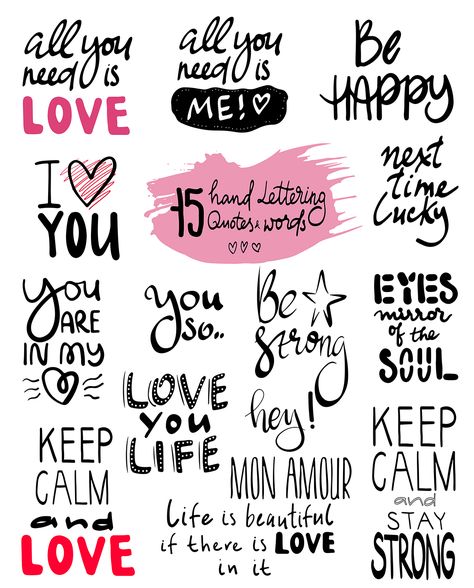 all you
need is
LOVE
all you
need is
ME!
Be
HAPPY
I
YOU
15 hand Lettering
Quotes & words
next
time
Lucky
You
ARE
IN MY
You
so..
Be
strong
EYES
mirror
of the
SOUL
LOVE
YOU
LIFE
hey!
KEEP
CALM
and
LOVE
MON AMOUR
Life is beautiful
if there is LOVE
in it
KEEP
CALM
and
STAY
STRONG